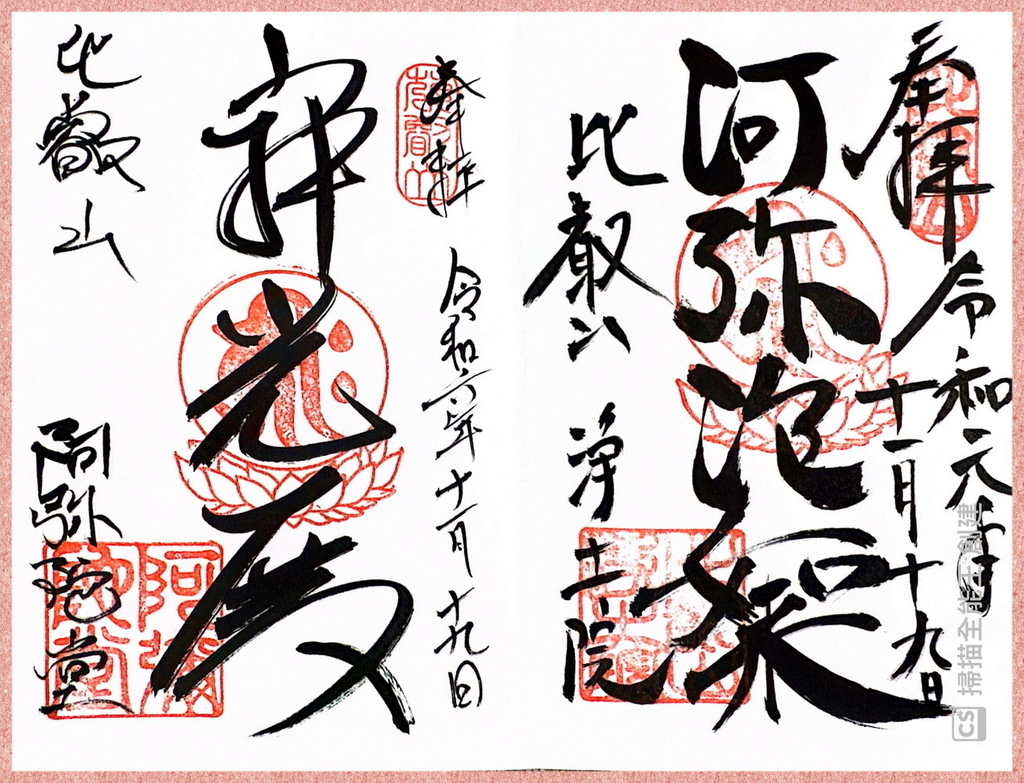 奉拝
令和元年
十一月十九日
阿弥陀如来
比叡山
浄土院
奉拝
令和六年十一月十九日
光
比叡山
阿弥陀堂
比叡山
阿弥陀堂
CS 掃描全能王 創建